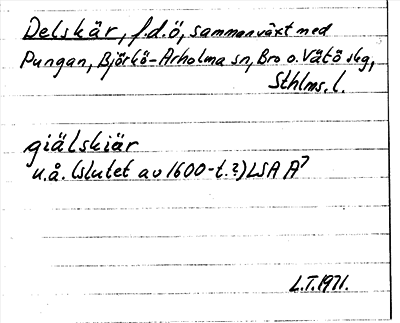 Delskär, f.d.ö, sammanväxt med
Pungan, Björkö-Arholma sn, Bro o. Vätö skg,
Sthlms. l.
giälskiär
u.å. (slutet av 1600-t.?) LSA A7
L.T. 1971.